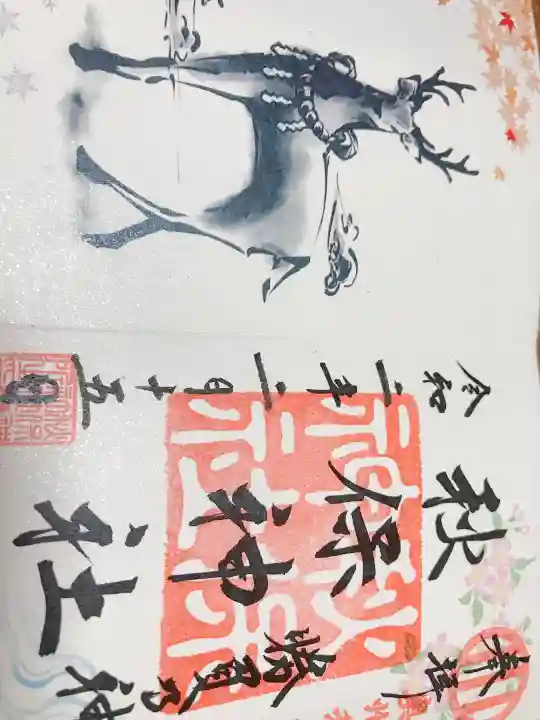 奉拝
勝負乃神
秋保神社
令和二年二月十五日